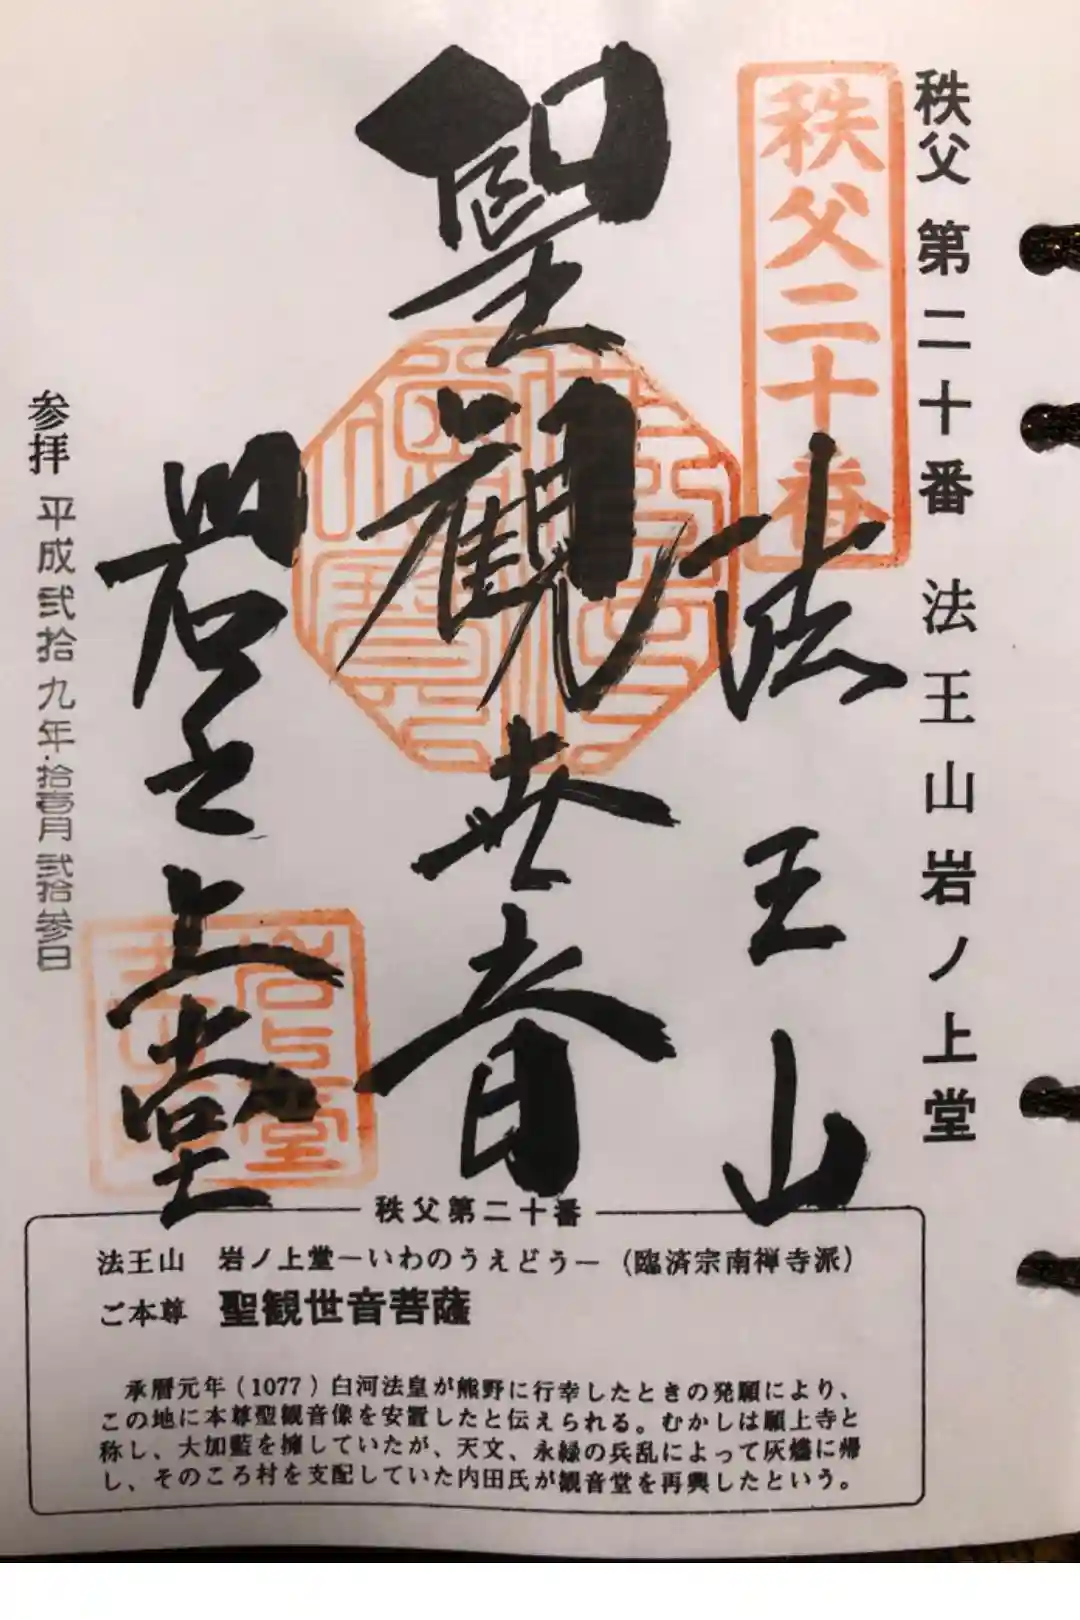 秩父第二十番 法王山岩ノ上堂
秩父二十番
法王山
聖観世音
岩之上堂
参拝 平成弐拾九年拾壱月弐拾参日
秩父第二十番
法王山 岩ノ上堂－いわのうえどう－(臨済宗南禅寺派)
ご本尊 聖観世音菩薩
承暦元年(1077)白河法皇が熊野に行幸したときの発願により、
この地に本尊聖観音像を安置したと伝えられる。むかしは願上寺と
称し、大加藍を擁していたが、天文、永緑の兵乱によって灰燼に帰
し、そのころ村を支配していた内田氏が観音堂を再興したという。